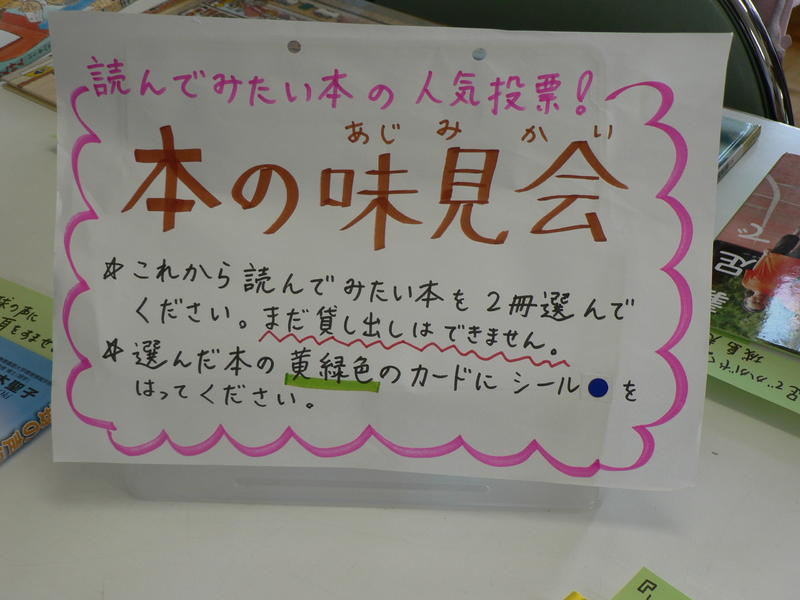 読んでみたい本の人気投票！
あじみかい
本の味見会
☆これから読んでみたい本を2冊選んで
ください。まだ貸し出しはできません。
☆選んだ本の黄緑色のカードにシール●を
はってください。